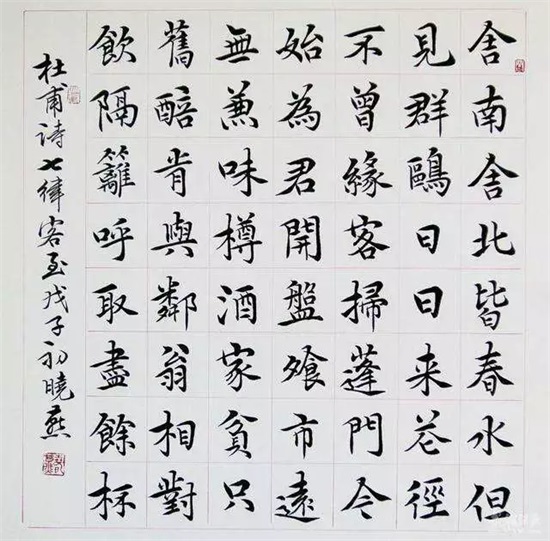 舍南舍北皆春水但
見群鷗日日来花徑
不曾緣客掃蓬門今
始為君開盤飧市遠
無兼味樽酒家貧只
舊醅肯與鄰翁相對
飲隔籬呼取盡餘杯
杜甫詩七律客至戊子初曉燕